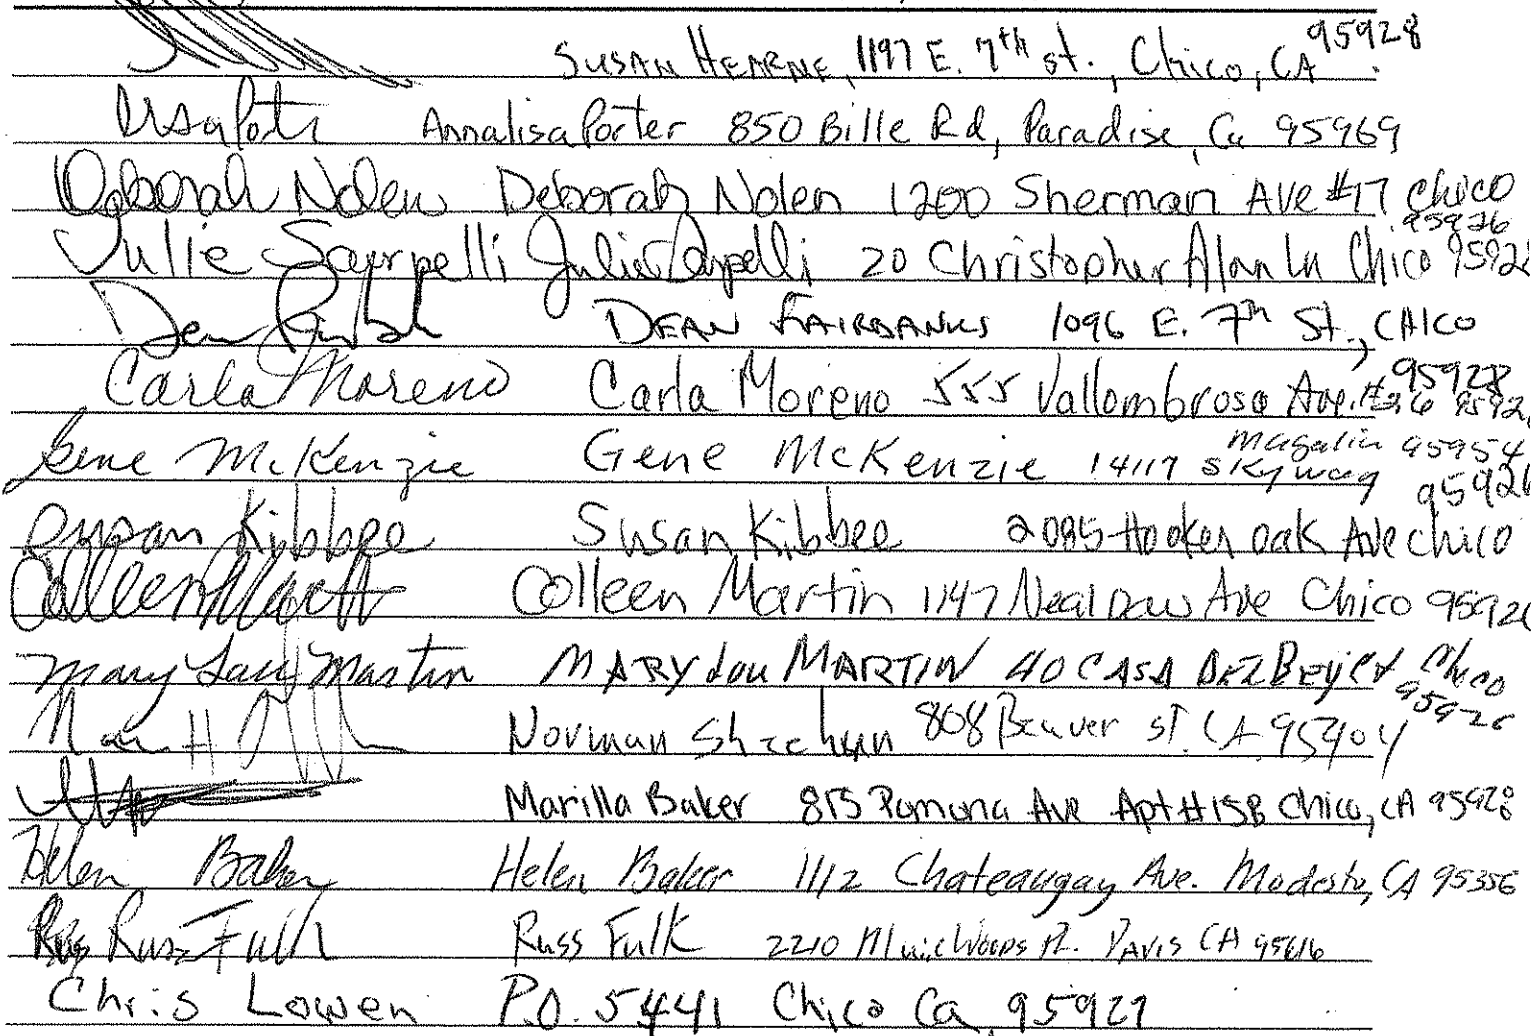 SUSAN HEARNE, 1197 E. 7th St., Chico, CA 95928
Annalisa Porter 850 Bille Rd, Paradise, Ca 95969
Deborah Nolen Deborah Nolen 1200 Sherman Ave #17 Chico 95926
Julie Scarpelli Julie Scarpelli 20 Christopher Alan Ln Chico
DEAN FAIRBANKS 1096 E. 7th St., CHICO 95928
Carla Moreno Carla Moreno 555 Vallombrosa Ave. #26
Gene McKenzie Gene McKenzie 14117 Skyway Magalia 95954
Susan Kibbee Susan Kibbee 2085 Hooker Oak Ave Chico 95926
Colleen Martin Colleen Martin 1147 Neal Dow Ave Chico
Mary Lou Martin MARY Lou MARTIN 40 CASA DEL REY Ct Chico 95926
Norman 808 Beaver St. CA 95404
Marilla Baker 815 Pomona Ave Apt #15B Chico, CA 95928
Helen Baker Helen Baker 1112 Chateaugay Ave. Modesto, CA 95356
Russ Fulk Russ Fulk 2210 Muir Woods Pl. DAVIS CA 95616
Chris Lowen P.O. 5441 Chico Ca 95927